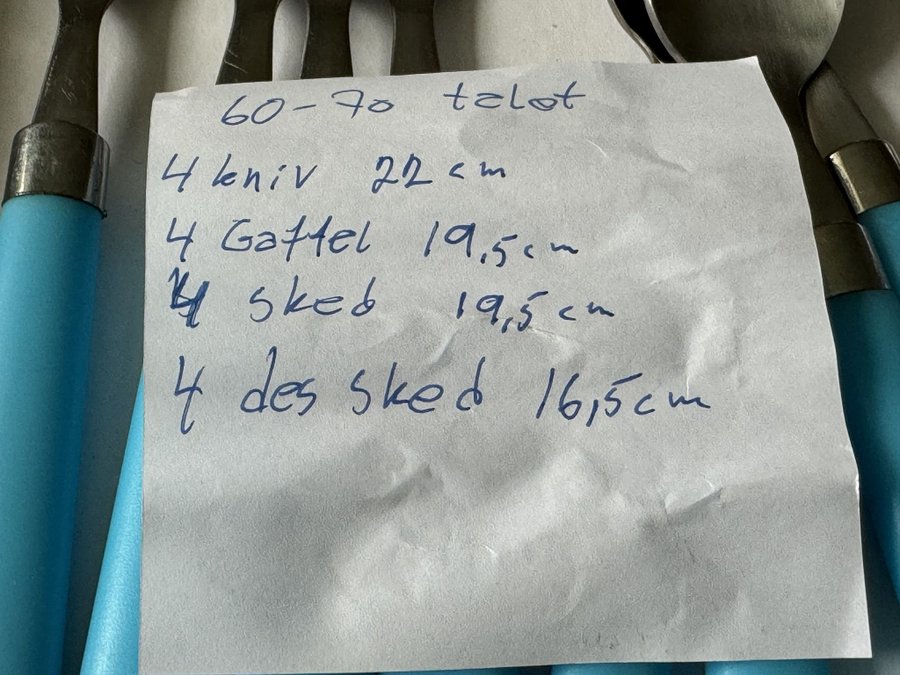 60-70 talet
4 kniv 22 cm
4 Gaffel 19,5 cm
4 sked 19,5 cm
4 des sked 16,5 cm